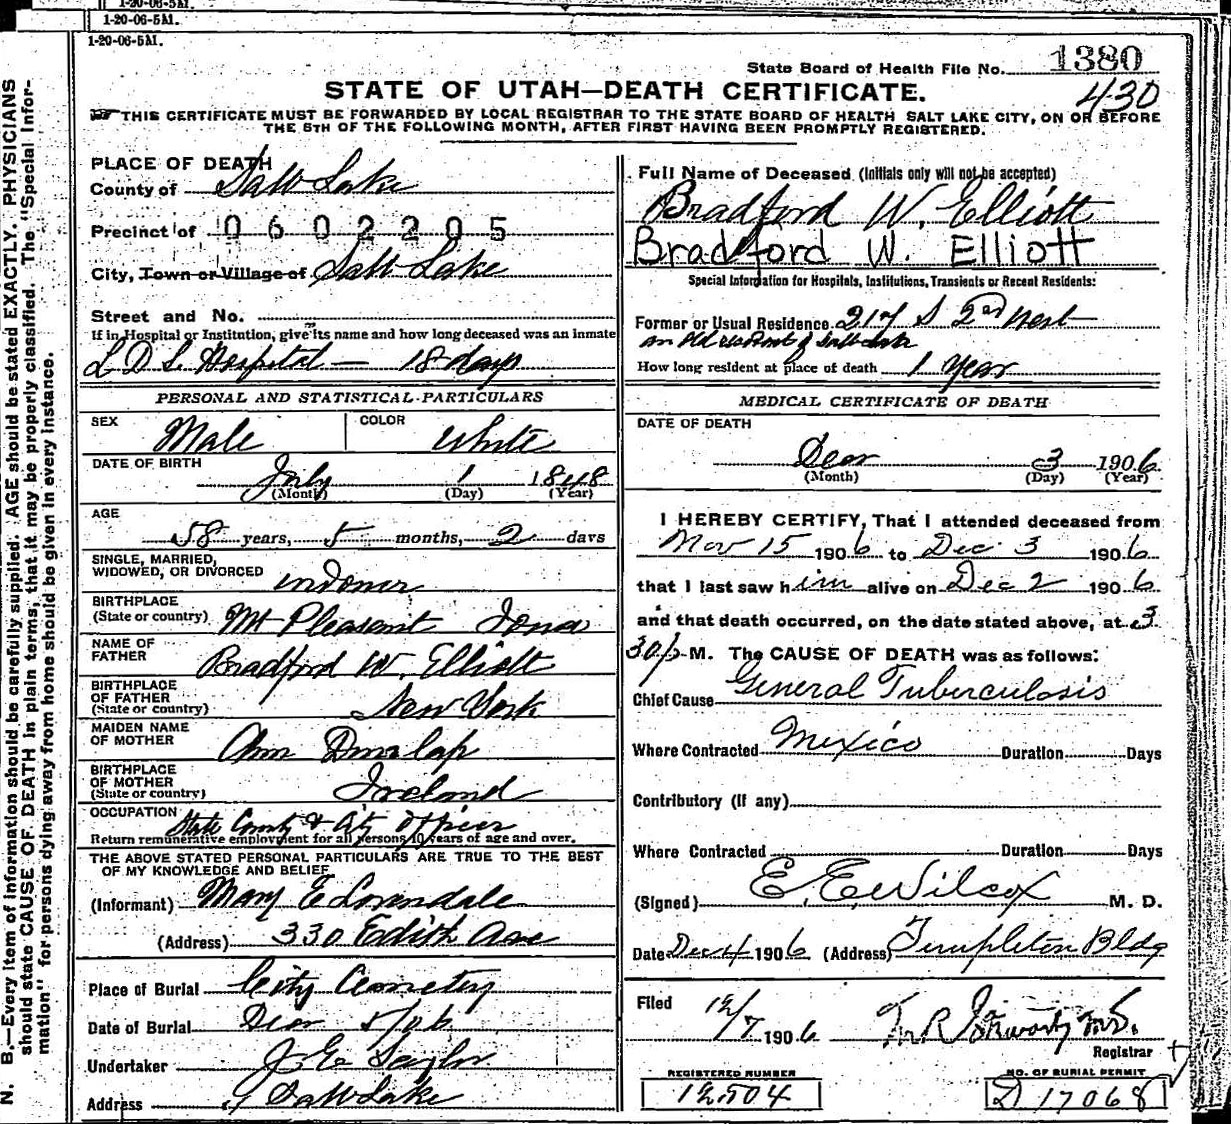 1-20-06-5M.
1-20-06-5M.
1-20-06-5M.
State Board of Health File No. 1380
430
STATE OF UTAH—DEATH CERTIFICATE.
THIS CERTIFICATE MUST BE FORWARDED BY LOCAL REGISTRAR TO THE STATE BOARD OF HEALTH SALT LAKE CITY, ON OR BEFORE
THE 5TH OF THE FOLLOWING MONTH, AFTER FIRST HAVING BEEN PROMPTLY REGISTERED.
N. B.—Every item of information should be carefully supplied. AGE should be stated EXACTLY. PHYSICIANS
should state CAUSE OF DEATH in plain terms, that it may be properly classified. The "Special Infor-
mation" for persons dying away from home should be given in every instance.
PLACE OF DEATH
County of Salt Lake
Precinct of 0602205
City, Town or Village of Salt Lake
Street and No.
If in Hospital or Institution, give its name and how long deceased was an inmate
L D S Hospital — 18 days
PERSONAL AND STATISTICAL PARTICULARS
SEX Male COLOR White
DATE OF BIRTH July 1 1848
(Month) (Day) (Year)
AGE
58 years, 5 months, 2 days
SINGLE, MARRIED,
WIDOWED, OR DIVORCED widower
BIRTHPLACE
(State or country) Mt Pleasant Iowa
NAME OF
FATHER Bradford W. Elliott
BIRTHPLACE
OF FATHER
(State or country) New York
MAIDEN NAME
OF MOTHER Ann Dunlap
BIRTHPLACE
OF MOTHER
(State or country) Ireland
OCCUPATION State County & City Officer
Return remunerative employment for all persons 10 years of age and over.
THE ABOVE STATED PERSONAL PARTICULARS ARE TRUE TO THE BEST
OF MY KNOWLEDGE AND BELIEF
(Informant) Mary E Lovendale
(Address) 330 Edith Ave
Place of Burial City Cemetery
Date of Burial Dec 5/06
Undertaker J. E. Taylor
Address Salt Lake
Full Name of Deceased (Initials only will not be accepted)
Bradford W. Elliott
Bradford W. Elliott
Special Information for Hospitals, Institutions, Transients or Recent Residents:
Former or Usual Residence 217 S 2nd West
an old resident of Salt Lake
How long resident at place of death 1 Year
MEDICAL CERTIFICATE OF DEATH
DATE OF DEATH
Dec 3 1906
(Month) (Day) (Year)
I HEREBY CERTIFY, That I attended deceased from
Nov 15 1906 to Dec. 3 1906
that I last saw him alive on Dec 2 1906
and that death occurred, on the date stated above, at 3
30 p M. The CAUSE OF DEATH was as follows:
Chief Cause General Tuberculosis
Where Contracted Mexico Duration Days
Contributory (if any)
Where Contracted Duration Days
(Signed) E. E. Wilcox M. D.
Date Dec 4 1906 (Address) Templeton Bldg
Filed 12/7 1906
Registrar
REGISTERED NUMBER NO. OF BURIAL PERMIT
12504 D 17068